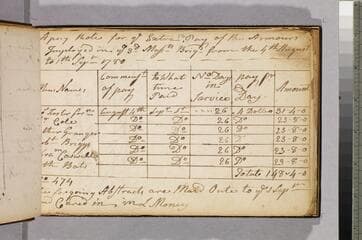 A pay Roles for ye Extra Pay of the Armours
Employed in ye 3d Massts Brigd from the 4th August
to 1th Septr 1780
Names Commenct of pay to What time Paid No Days in Service pay pr Day Amount
Augst 4th Septr 1st 26 A Dollar 31-4-0
Cole Do Do 26 Do 23-8-0
Granger Do Do 26 Do 23-8-0
Briggs Do Do 26 Do 23-8-0
Caswell Do Do 26 Do 23-8-0
Bats Do Do 26 Do 23-8-0
Totals 148-4-0
No 474
foregoing Abstracts are Made Oute to ye 1 Septr
and Carred in Money